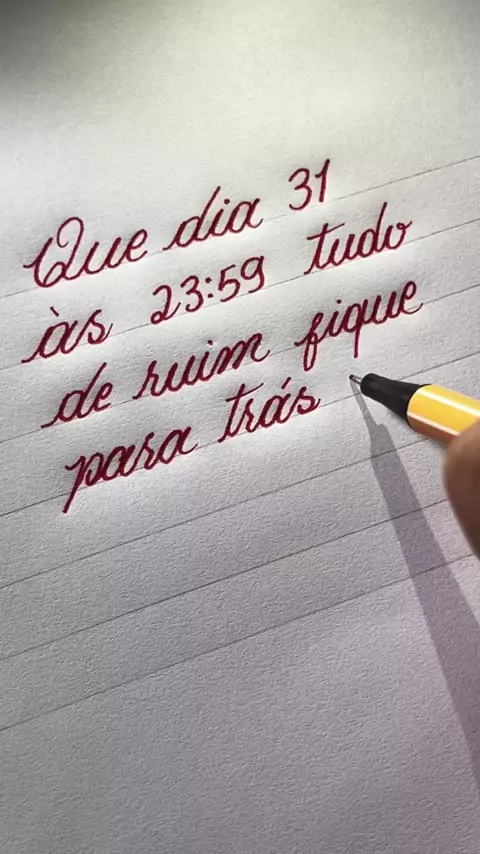 Que dia 31
às 23:59 tudo
de ruim fique
para trás